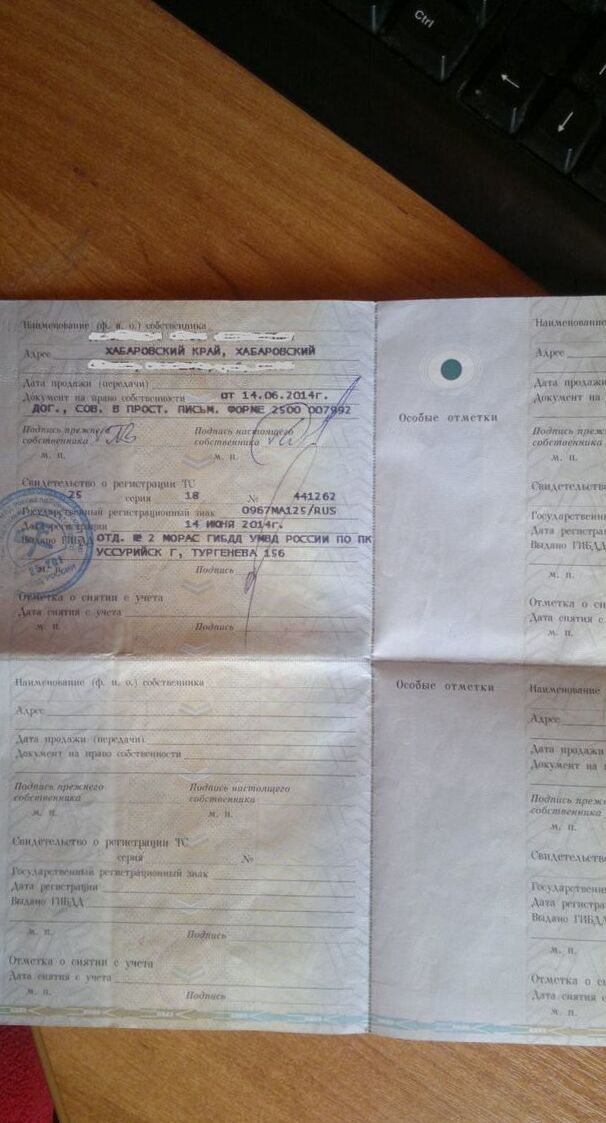 Ctrl
Наименование (ф. и. о.) собственника
Адрес ХАБАРОВСКИЙ КРАЙ, ХАБАРОВСКИЙ
Дата продажи (передачи)
Документ на право собственности от 14.06.2014г.
ДОГ., СОВ. В ПРОСТ. ПИСЬМ. ФОРМЕ 2500 007992
Подпись прежнего собственника
Подпись настоящего собственника
м. п.
м. п.
Свидетельство о регистрации ТС
25 серия 18 № 441262
Государственный регистрационный знак О967МА125/RUS
Дата регистрации 14 ИЮНЯ 2014г.
Выдано ГИБДД ОТД. № 2 МОРАС ГИБДД УМВД РОССИИ ПО ПК
УССУРИЙСК Г, ТУРГЕНЕВА 156
Подпись
Отметка о снятии с учета
Дата снятия с учета
м. п. Подпись
Особые отметки
Наименование
Адрес
Дата продажи
Документ на
Подпись прежнего
собственника
м. п.
Свидетельство
Государственн
Дата регистра
Выдано ГИБДД
м. п.
Отметка о сн
Дата снятия с
м. п.
Наименование (ф. и. о.) собственника
Адрес
Дата продажи (передачи)
Документ на право собственности
Подпись прежнего собственника
Подпись настоящего собственника
м. п.
м. п.
Свидетельство о регистрации ТС
серия №
Государственный регистрационный знак
Дата регистрации
Выдано ГИБДД
м. п. Подпись
Отметка о снятии с учета
Дата снятия с учета
м. п. Подпись
Особые отметки
Наименование
Адрес
Дата продажи
Документ на
Подпись преж
собственника
м. п.
Свидетельств
Государственн
Дата регистра
Выдано ГИБДД
м. п.
Отметка о сн
Дата снятия с
м. п.